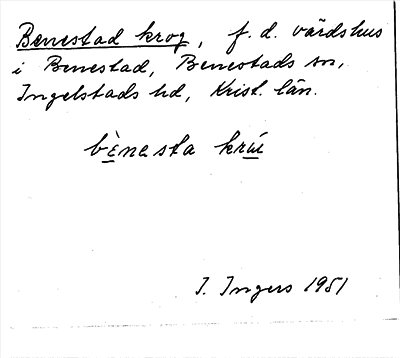 Benestad krog, f.d. värdshus
i Benestad, Benestads sn,
Ingelstads hd, Krist. län.
bènesta krú
I. Ingers 1951